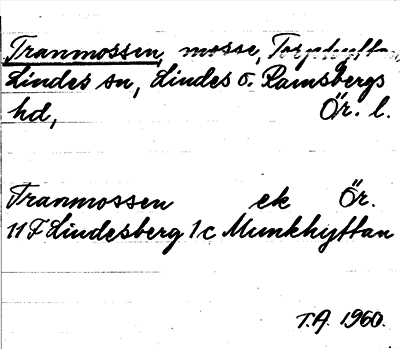 Tranmossen, mosse, Torphyttan,
Lindes sn, Lindes o. Ramsbergs
hd, Ör. l.
Tranmossen ek Ör.
11 F Lindesberg 1c Munkhyttan
T.A. 1960.